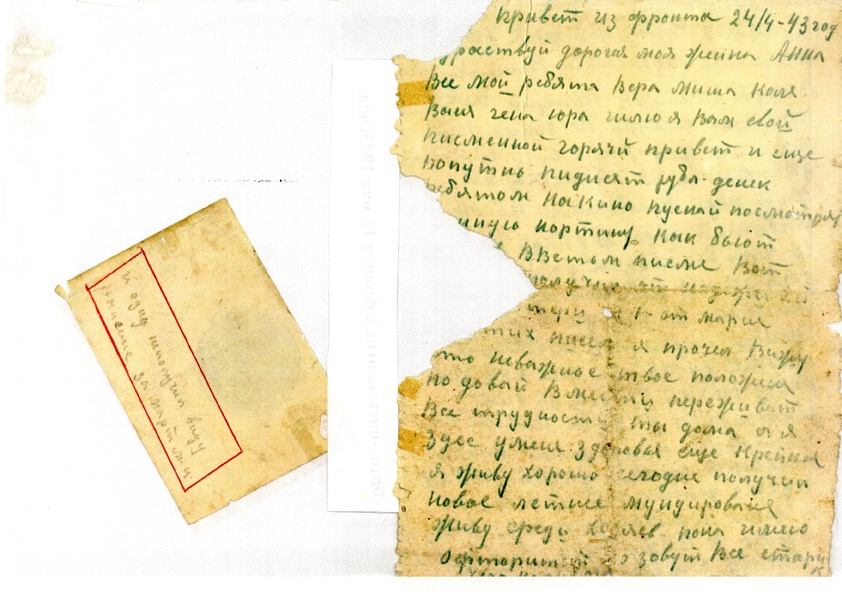 Привет из фронта 24/4-43 год
здраствуй дорогая моя жена Анна
Все мой ребята Вера Миша Коля
Ваня гена юра шлю я Вам свой
писменной горячй привет и еще
попутно пидисят рубл. денек
ребятом на кино пускай посмотрят
кортину как бьют
В Ветом писме Вот
получил от
от марие
этих писем я прочел Вижу
что неважное твое положил
но довай Вмести переживат
Все трудност ты дома а я
Здес уменя здоровья еще крепкая
я живу хорошо сегодне получил
новое летнее мундирование
живу среди пока имею
овторитет зовут Все стари
и одну неполучил виду
за март м-ц